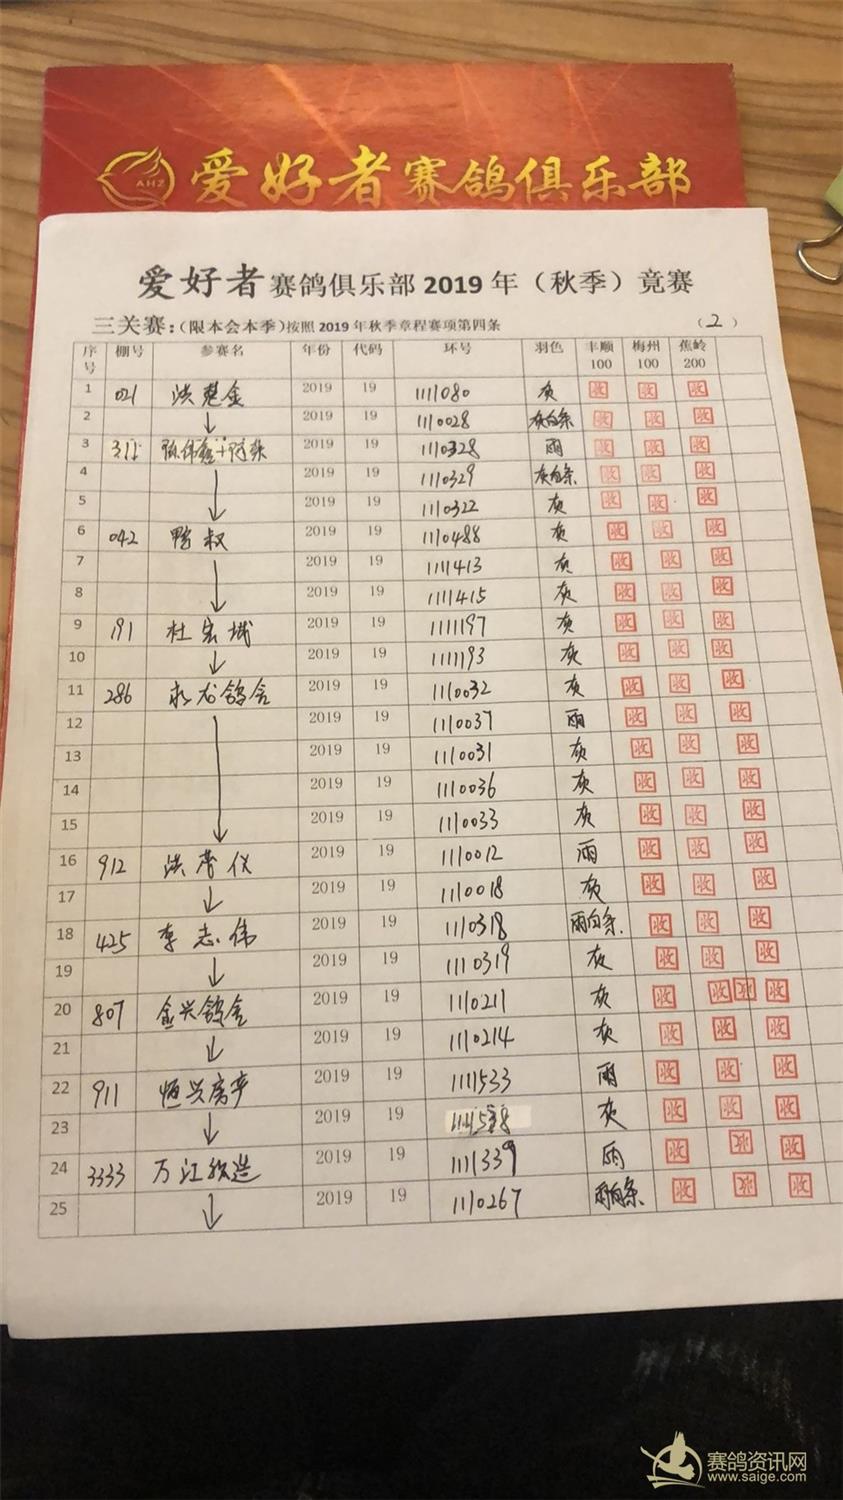 AHZ 爱好者赛鸽俱乐部
爱好者赛鸽俱乐部 2019 年（秋季）竟赛
三关赛：（限本会本季）按照 2019 年秋季章程赛项第四条 （2）
序号 棚号 参赛名 年份 代码 环号 羽色 丰顺100 梅州100 蕉岭200
1 021 洪 金 2019 19 1111080 灰 收 收 收
2 ↓ 2019 19 1110028 灰白条 收 收 收
3 315 2019 19 1110328 雨 收 收 收
4 2019 19 1110329 灰白条 收 收 收
5 ↓ 2019 19 1110322 灰 收 收 收
6 042 鸭叔 2019 19 1110488 灰 收 收 收
7 2019 19 1111413 灰 收 收 收
8 ↓ 2019 19 1111415 灰 收 收 收
9 191 杜宏城 2019 19 1111197 灰 收 收 收
10 ↓ 2019 19 1111193 灰 收 收 收
11 286 龙鸽舍 2019 19 1110032 灰 收 收 收
12 2019 19 1110037 雨 收 收 收
13 2019 19 1110031 灰 收 收 收
14 2019 19 1110036 灰 收 收 收
15 ↓ 2019 19 1110033 灰 收 收 收
16 912 洪 仪 2019 19 1110012 雨 收 收 收
17 ↓ 2019 19 1110018 灰 收 收 收
18 425 李志伟 2019 19 1110318 雨白条 收 收 收
19 ↓ 2019 19 1110319 灰 收 收 收
20 807 金兴鸽舍 2019 19 1110211 灰 收 收 收 收
21 ↓ 2019 19 1110214 灰 收 收 收
22 911 恒兴房车 2019 19 1111533 雨 收 收 收
23 ↓ 2019 19 灰 收 收 收
24 3333 万江 2019 19 1111339 雨 收 收 收
25 ↓ 2019 19 1110267 雨白条 收 收 收
赛鸽资讯网
www.saige.com